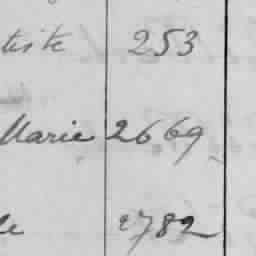 tiste 253
Marie 2669
le 2782